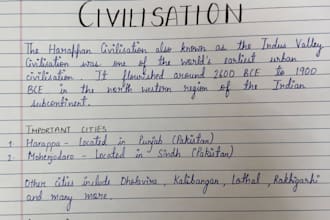 CIVILISATION
The Harappan Civilisation also known as the Indus Valley
Civilisation was one of the world's earliest urban
civilisation. It flourished around 2600 BCE to 1900
BCE in the north western region of the Indian
subcontinent.
IMPORTANT CITIES
1. Harappa - Located in Punjab (Pakistan)
2. Mohenjodaro - Located in Sindh (Pakistan)
Other cities include Dholavira, Kalibangan, Lothal, Rakhigarhi
and many more.